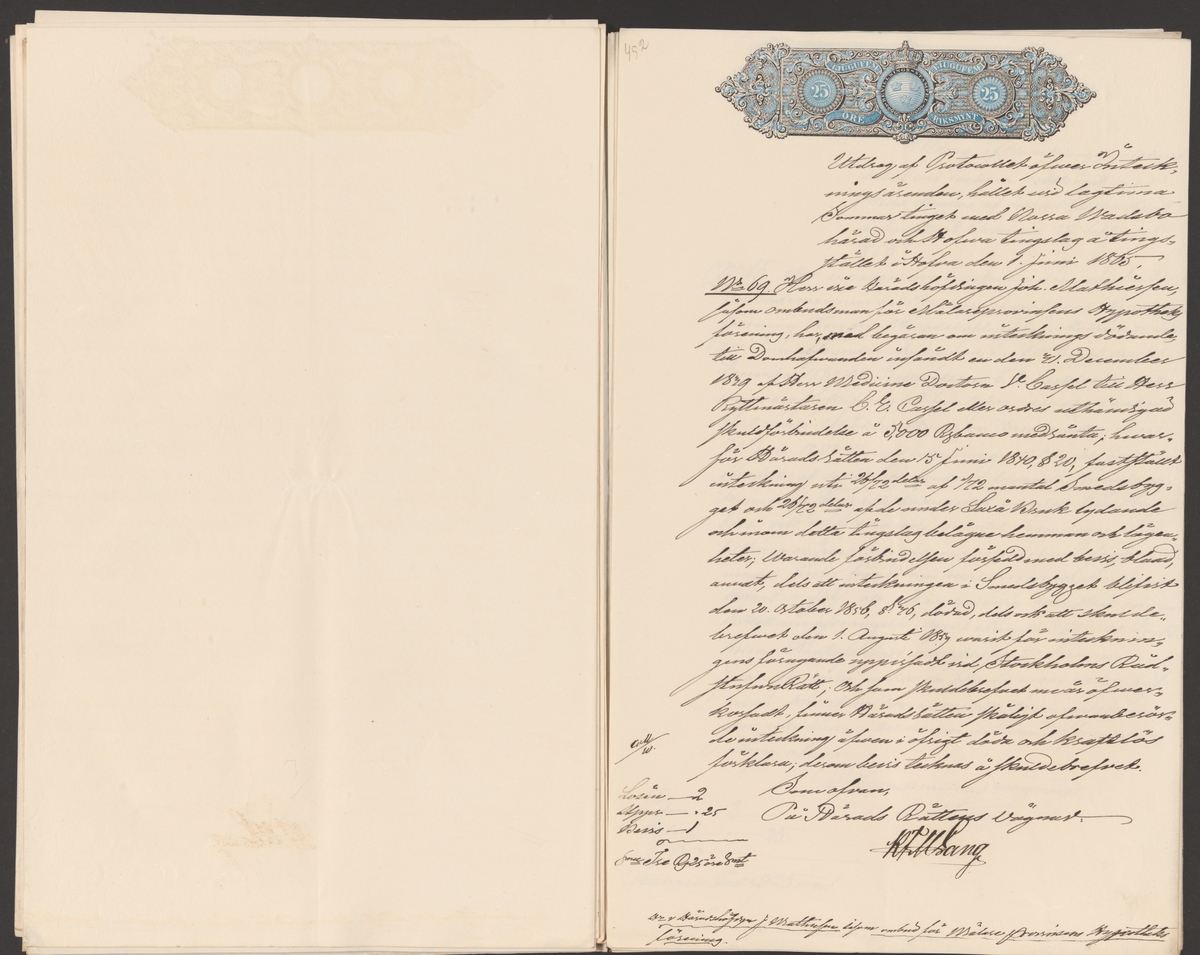 492
TJUGUFEM TJUGUFEM
25 25
ÖRE RIKSMYNT
Utdrag af Protocollet öfwer Inteck-
ningsärenden, hållet vid lagtima
Sommartinget med Norra Wadsbo
härad och Hofwa tingslag å Tings-
stället i Hofva den 1. Juni 1865.
No 69. Herr vice Häradshöfdingen Joh. Mathiessen,
såsom ombudsman för Mälareprovinsens Hypotheks
förening, har, med begäran om intecknings dödande,
till Domhafwanden insändt en den 21. December
1839 af Herr Medicine Doctorn Cassel till Herr
Ryttmästaren C. E. Cassel eller ordres uthändigad
skuldförbindelse å 5,000 Rbanco med ränta; hwar-
för Härads Rätten den 15 Juni 1840, § 20, fastställt
inteckning uti 26/72 delar af 1/12 mantal Smedsbyg-
get och 26/72 delar af de under Saxå Bruk lydande
och inom detta tingslag belägne hemman och lägen-
heter; Warande förbindelsen försedd med bevis, bland
annat, dels att inteckningen i Smedsbygget blifvit
den 20. October 1856, § 76, dödad, dels ock att skulde-
brefwet den 1. Augusti 1859 warit för intecknin-
gens förnyande uppvisadt vid Stockholms Råd-
stufwu Rätt; Och som skuldebrefwet nu är öfwer-
korsadt, finner Härads Rätten skäligt ofwanberör-
de inteckning äfwen i öfrigt död och kraftlös
förklara; derom bevis tecknas å skuldebrefvet.
Som ofvan.
På Härads Rättens vägnar:
Lösen — 2
Uppr — " 25
Bevis — 1
Tre R 25 öre Rmt
Lang
Vice Häradshöfdin J. Mathiessen såsom ombud för Mälare provinsens Hypotheks
förening.